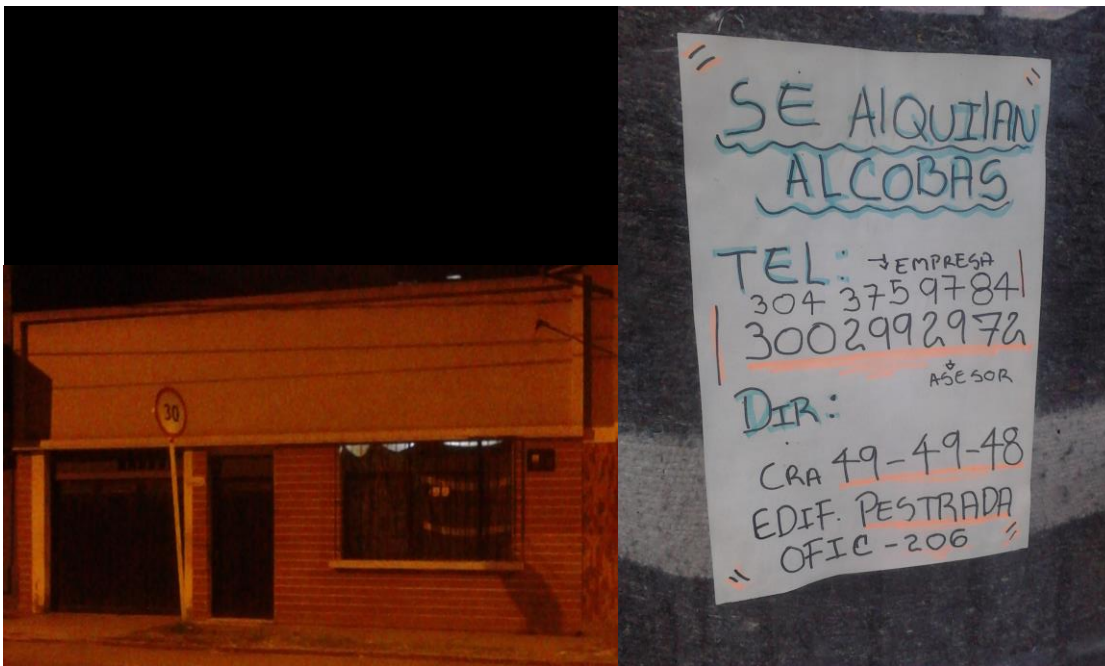 30
SE AlQUIlAN
ALCOBAS
TEL: → EMPRESA
304 3759784
3002992972
ASESOR
DIR:
CRA 49-49-48
EDIF. PESTRADA
OFIC-206